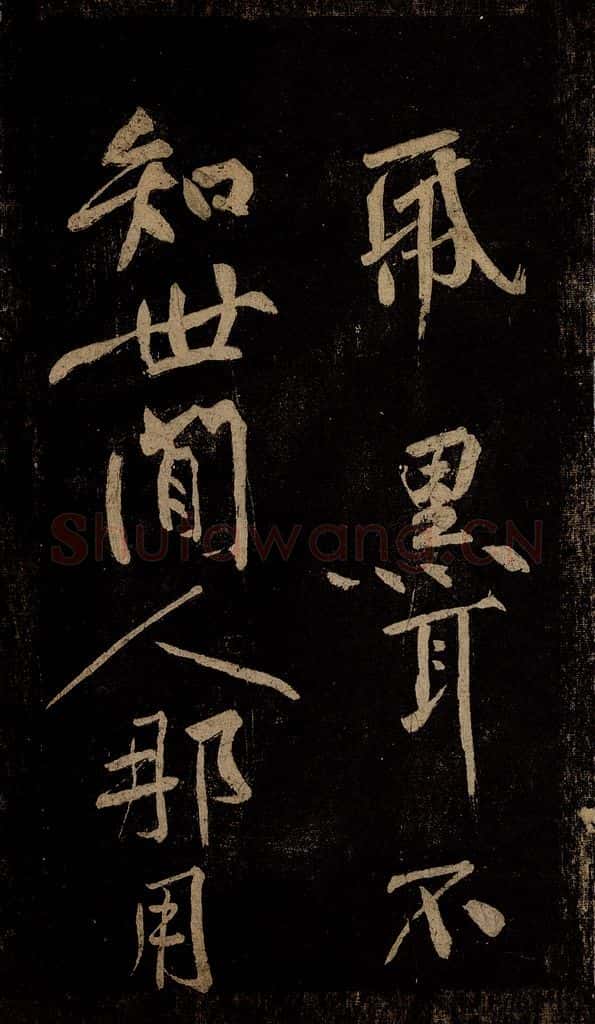 黑耳不
知世閒人那用
Shufawang.CN